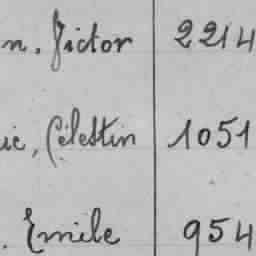 n. Victor 2214
ic, Célestin 1051
. Emile 954